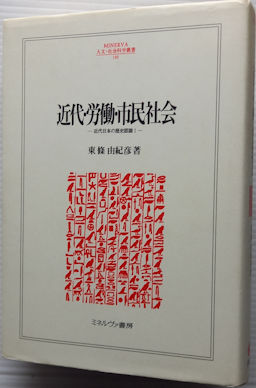 MINERVA
人文・社会科学叢書
近代・労働・市民社会
―近代日本の歴史認識Ⅰ―
東條由紀彦著
ミネルヴァ書房